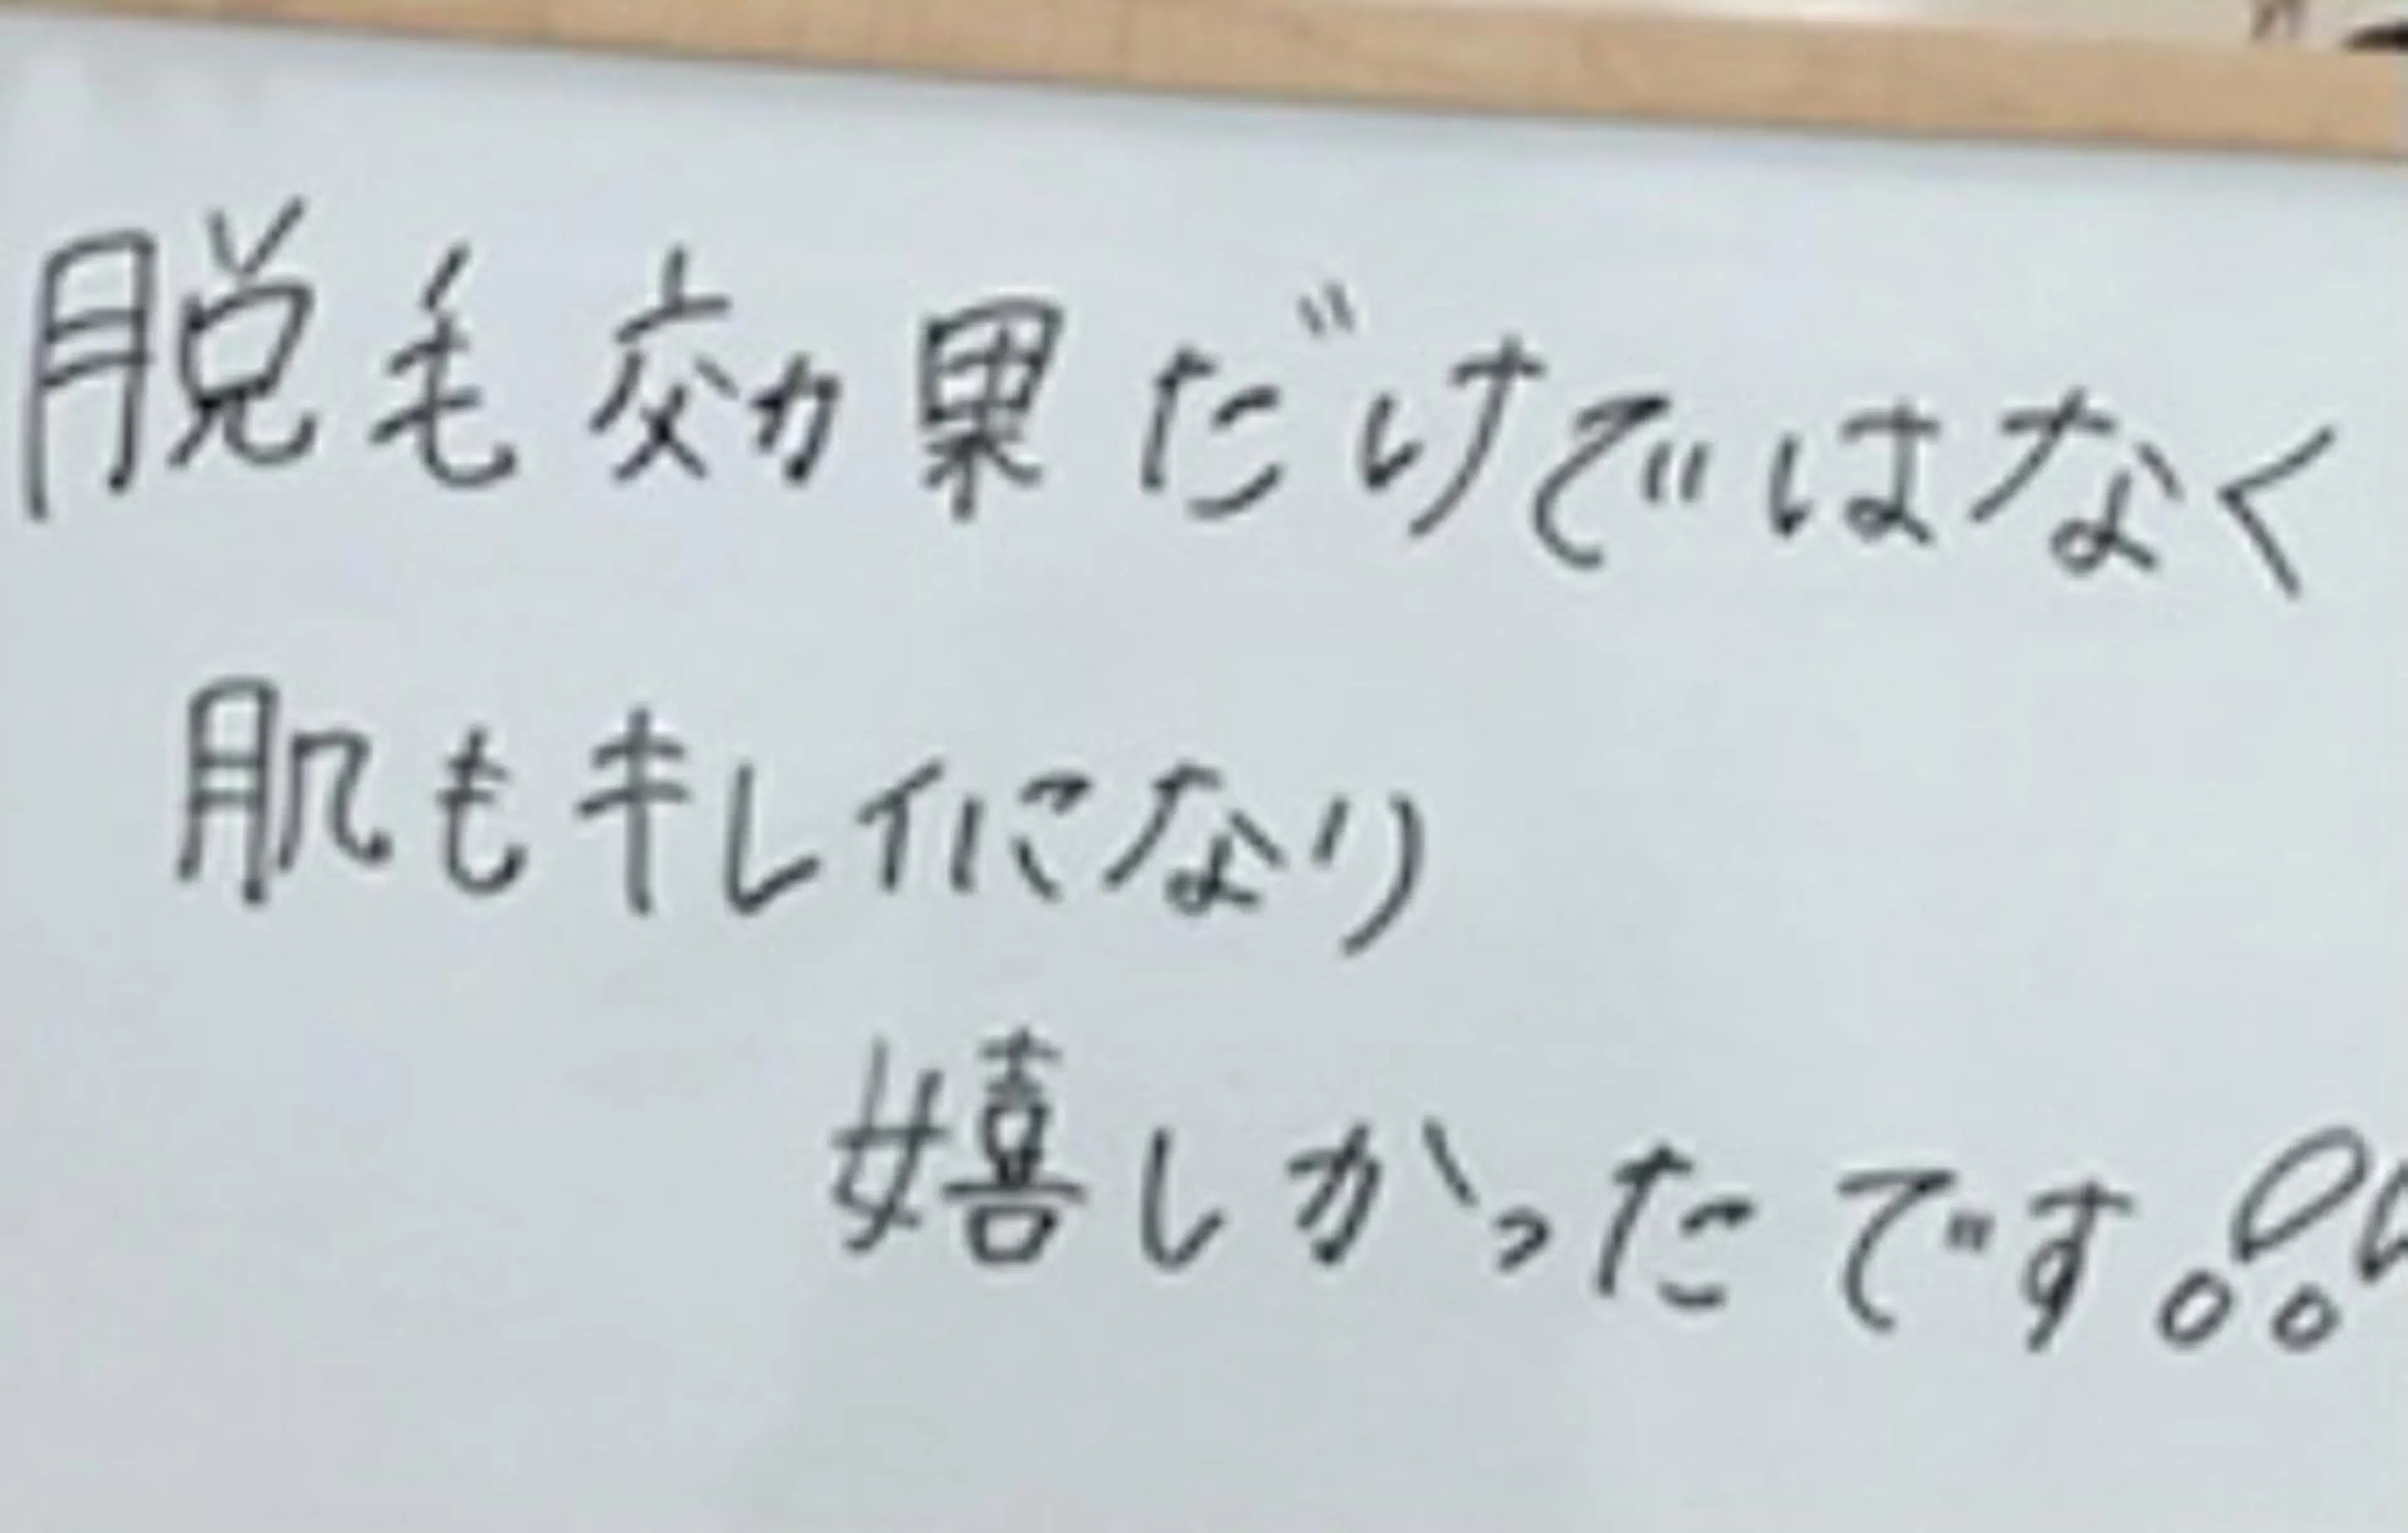 脱毛効果だけではなく
肌もキレイになり
嬉しかったです!!